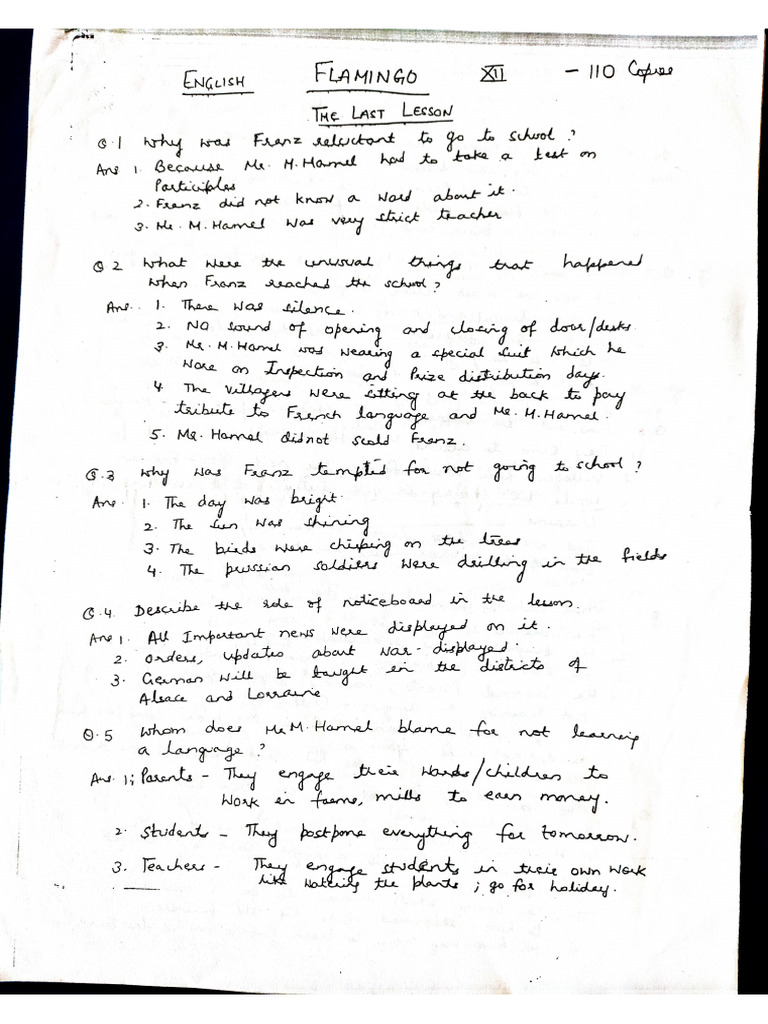 ENGLISH FLAMINGO XII - 110 Copies
THE LAST LESSON
Q.1 Why was Franz reluctant to go to school?
Ans 1. Because Mr. M. Hamel had to take a test on
Participles
2. Franz did not know a word about it.
3. Mr. M. Hamel was very strict teacher
Q 2 What were the unusual things that happened
when Franz reached the school?
Ans. 1. There was silence.
2. No sound of opening and closing of door/desks.
3. Mr. M. Hamel was wearing a special suit which he
wore on Inspection and Prize distribution days.
4 The villagers were sitting at the back to pay
tribute to French language and Mr. M. Hamel.
5. Mr. Hamel didnot scold Franz.
Q.3 Why was Franz tempted for not going to school?
Ans. 1. The day was bright.
2. The sun was shining
3. The birds were chirping on the trees
4. The prussian soldiers were drilling in the fields
Q.4. Describe the role of noticeboard in the lesson.
Ans 1. All Important news were displayed on it.
2. Orders, updates about war - displayed.
3. German will be taught in the districts of
Alsace and Lorraine
Q.5 Whom does Mr M. Hamel blame for not learning
a language?
Ans. 1; Parents - They engage their wards/children to
work in farms, mills to earn money.
2. Students - They postpone everything for tomorrow.
3. Teachers - They engage students in their own work
like watering the plants; go for holiday.